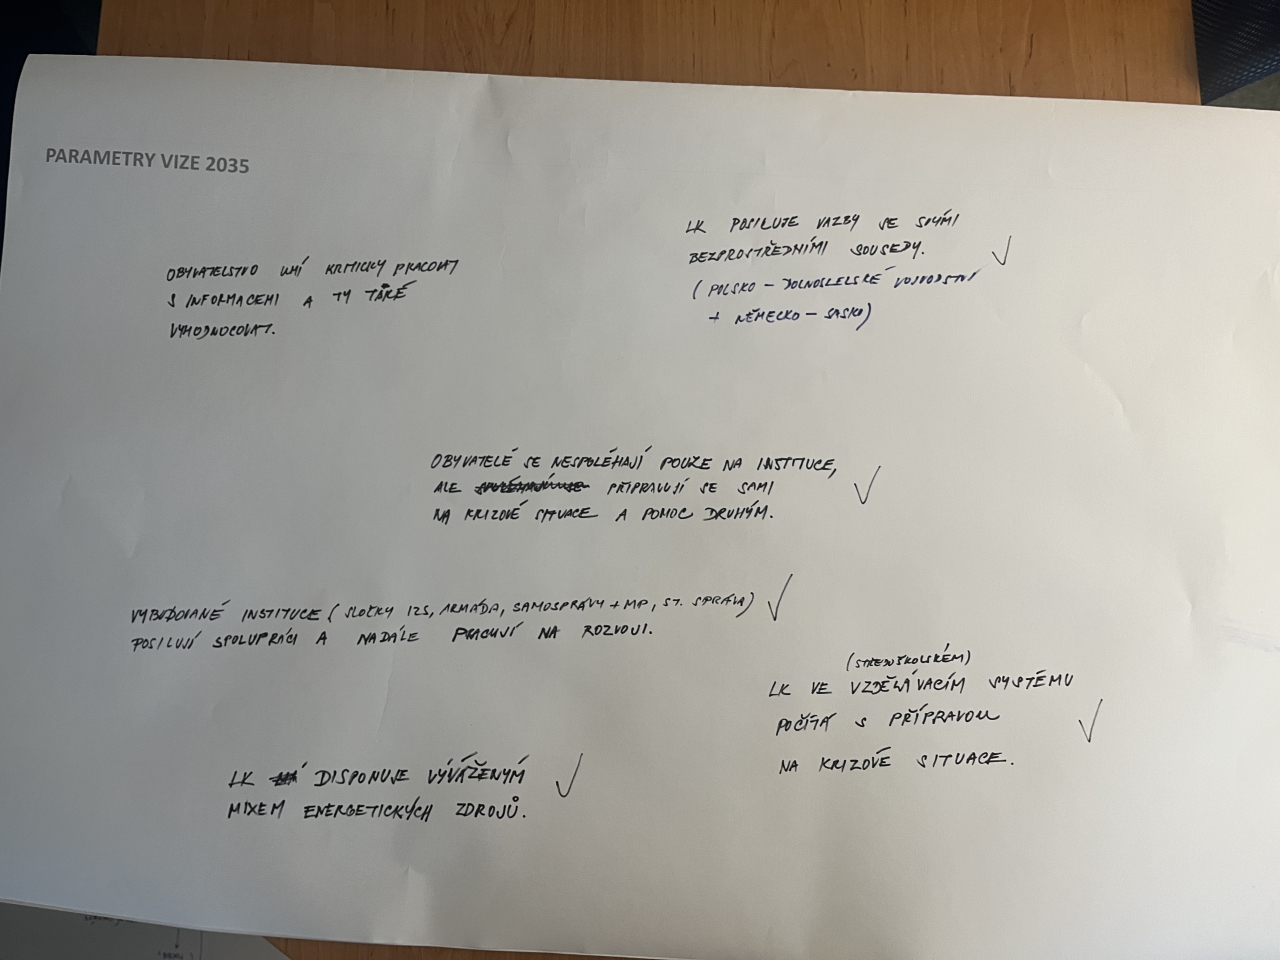 PARAMETRY VIZE 2035
OBYVATELSTVO UMÍ KRITICKY PRACOVAT
S INFORMACEMI A TY TAKÉ
VYHODNOCOVAT.
LK POSILUJE VAZBY SE SVÝMI
BEZPROSTŘEDNÍMI SOUSEDY.
(POLSKO – DOLNOSLELSKÉ VOJVODSTVÍ
+ NĚMECKO – SASKO)
OBYVATELÉ SE NESPOLÉHAJÍ POUZE NA INSTITUCE,
ALE PŘIPRAVUJÍ SE SAMI
NA KRIZOVÉ SITUACE A POMOC DRUHÝM.
VYBUDOVANÉ INSTITUCE (SLOŽKY IZS, ARMÁDA, SAMOSPRÁVY + MP, ST. SPRÁVA)
POSILUJÍ SPOLUPRÁCI A NADÁLE PRACUJÍ NA ROZVOJI.
(STŘEDOŠKOLSKÉM)
LK VE VZDĚLÁVACÍM SYSTÉMU
POČÍTÁ S PŘÍPRAVOU
NA KRIZOVÉ SITUACE.
LK DISPONUJE VÝVÁŽENÝM
MIXEM ENERGETICKÝCH ZDROJŮ.